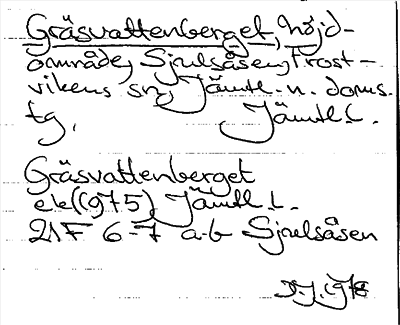 Gräsvattenberget, höjd-
område, Sjulsåsen, Frost-
vikens sn, Jämtl. n. doms.
tg, Jämtl.l.
Gräsvattenberget
ek (1975) Jämtl.l.
21F 6-7 a-b Sjulsåsen
1978